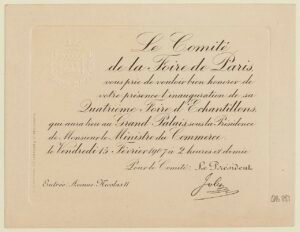 Le Comité
de la Foire de Paris
vous prie de vouloir bien honorer de
votre présence l'inauguration de sa
Quatrième Foire d'Echantillons,
qui aura lieu au Grand Palais sous la Présidence
de Monsieur le Ministre du Commerce
le Vendredi 15 Février 1907 à 2 heures et demie
Pour le Comité: Le Président
Entrée Avenue Nicolas II